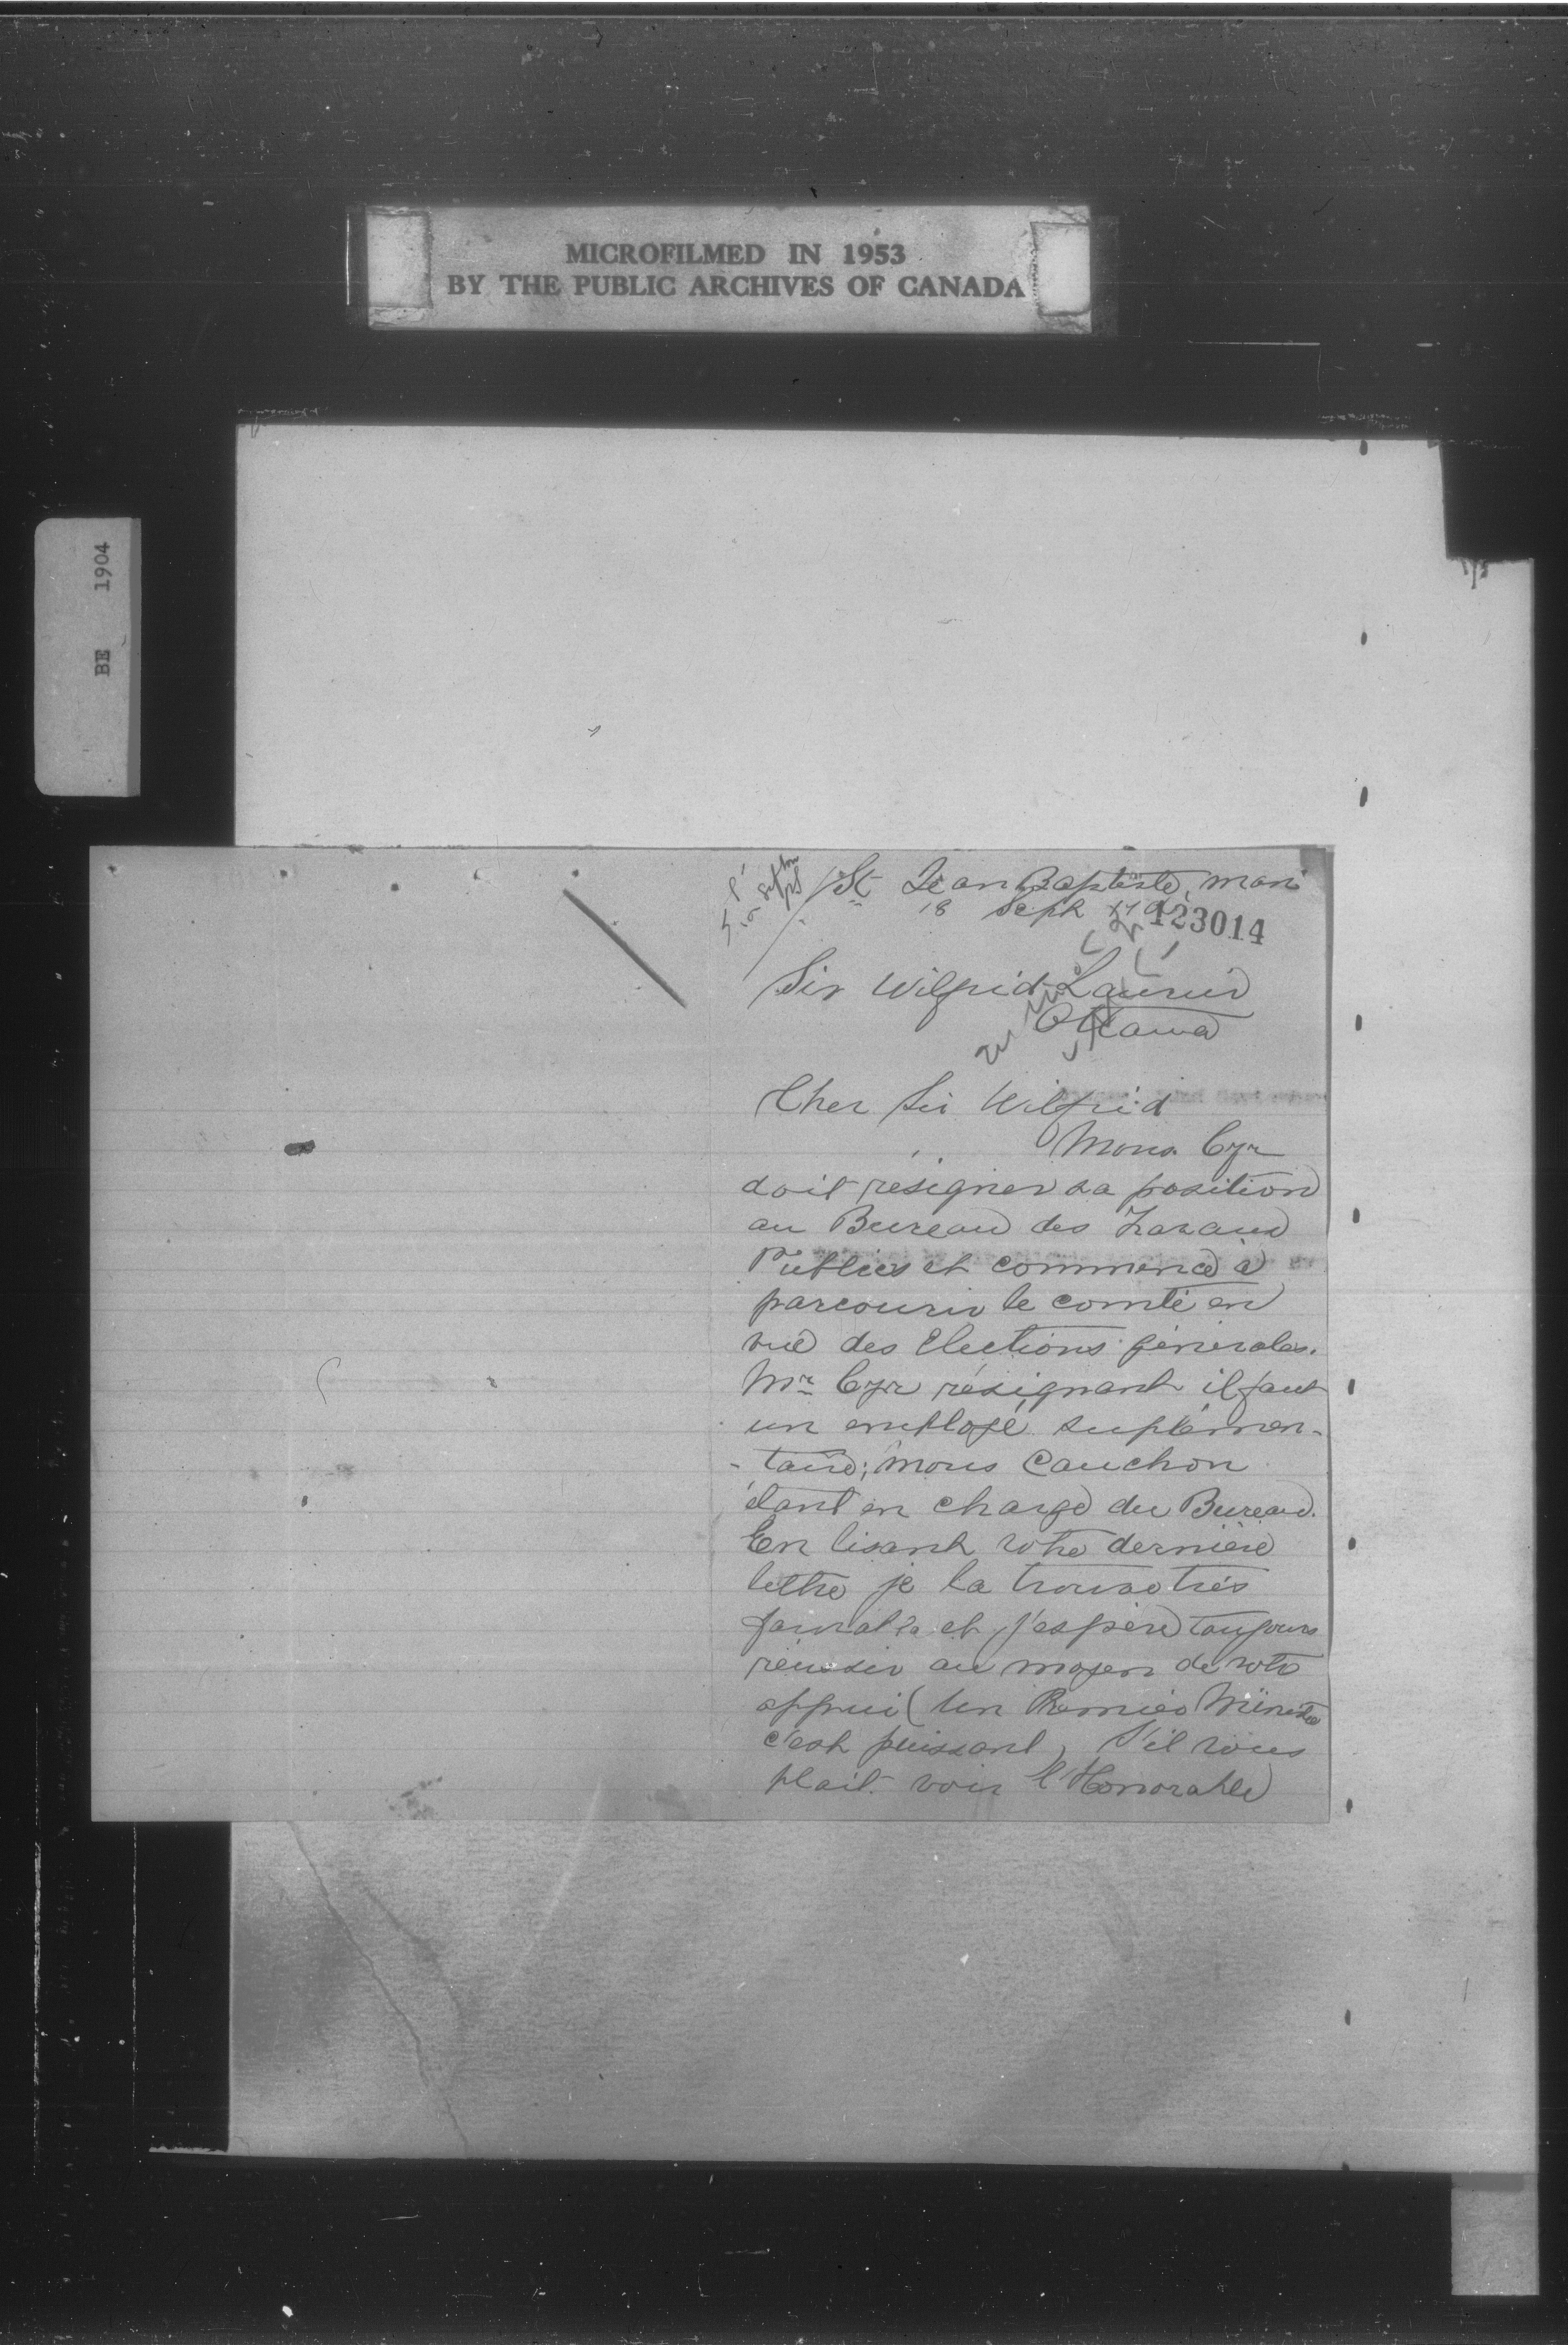 MICROFILMED IN 1953
BY THE PUBLIC ARCHIVES OF CANADA
BE 1904
St Jean Baptiste, Man
18 Sept
123014
Sir Wilfrid Laurier
Ottawa
Cher Sir Wilfrid
Mons. Cyr
doit résigner sa position
au Bureau des Travaux
Publics et commencé à
parcourir le comté en
vue des Elections générales.
Mr Cyr résignant il faut
un employé suplémen-
-taire; Mons Cauchon
étant en charge du Bureau.
En lisant votre dernière
lettre je la trouve très
favorable et j'espère toujours
réussir au moyen de votre
appui (Un Premier Ministre
c'est puissant) S'il vous
plait voir l'Honorable